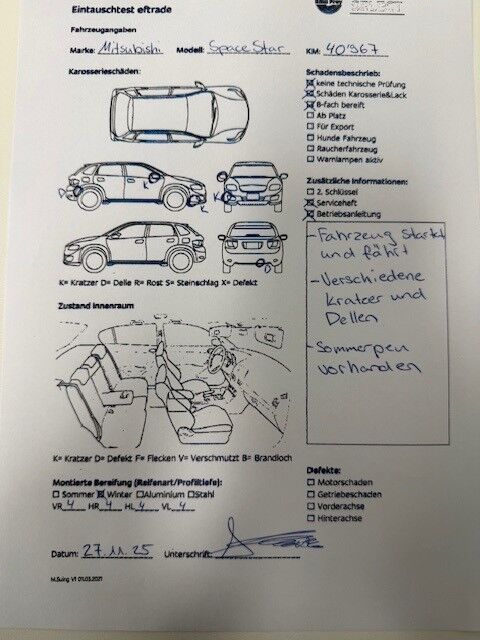 Eintauschtest eftrade
SELECT
Fahrzeugangaben
Marke: Mitsubishi Modell: Space Star KM: 40'967
Karosserieschäden:
K
D
K
K= Kratzer D= Delle R= Rost S= Steinschlag X= Defekt
Schadensbeschrieb:
keine technische Prüfung
Schäden Karosserie&Lack
8-fach bereift
Ab Platz
Für Export
Hunde Fahrzeug
Raucherfahrzeug
Warnlampen aktiv
Zusätzliche Informationen:
2. Schlüssel
Serviceheft
Betriebsanleitung
- Fahrzeug startet
und fährt
- Verschiedene
Kratzer und
Dellen
- Sommerpneu
vorhanden
Zustand Innenraum
K= Kratzer D= Defekt F= Flecken V= Verschmutzt B= Brandloch
Montierte Bereifung (Reifenart/Profiltiefe):
Sommer Winter Aluminium Stahl
VR 4 HR 4 HL 4 VL 4
Defekte:
Motorschaden
Getriebeschaden
Vorderachse
Hinterachse
Datum: 27.11.25 Unterschrift:
M.Suing V1 01.03.2021